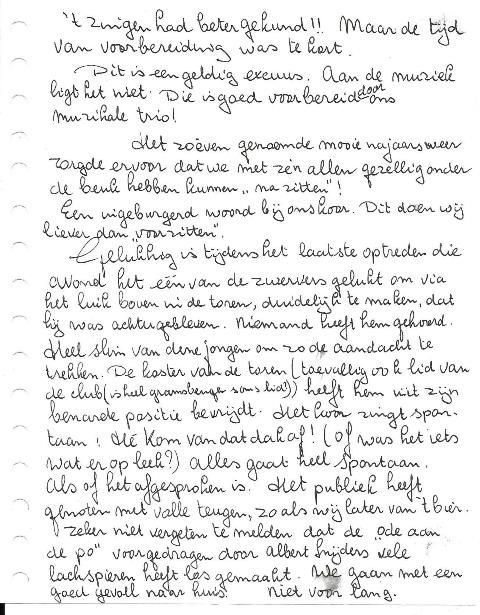 't zingen had beter gekund!! Maar de tijd
van voorbereiding was te kort.
Dit is een geldig excuus. Aan de muziek
ligt het niet. Die is goed voorbereid door ons
muzikale trio!
Het zoëven genoemde mooie najaarsweer
zorgde ervoor dat we met z'n allen gezellig onder
de beuk hebben kunnen „na zitten"!
Een ingeburgerd woord bij ons koor. Dit doen wij
liever dan „voorzitten".
Gelukkig is tijdens het laatste optreden die
avond het één van de zwervers gelukt om via
het luik boven in de toren, duidelijk te maken, dat
hij was achtergebleven. Niemand heeft hem gehoord.
Heel slim van deze jongen om zo de aandacht te
trekken. De koster van de toren (toevallig ook lid van
de club (is heel gramsbergen soms lid!)) heeft hem uit zijn
benarde positie bevrijdt. Het koor zingt spon-
taan! Hé Kom van dat dak af! (of was het iets
wat er op leek?) Alles gaat heel spontaan.
Als of het afgesproken is. Het publiek heeft
genoten met volle teugen, zo als wij later van 't bier.
Zeker niet vergeten te melden dat de „ode aan
de po" voorgedragen door Albert Snijders vele
lachspieren heeft los gemaakt. We gaan met een
goed gevoel naar huis. Niet voor lang.